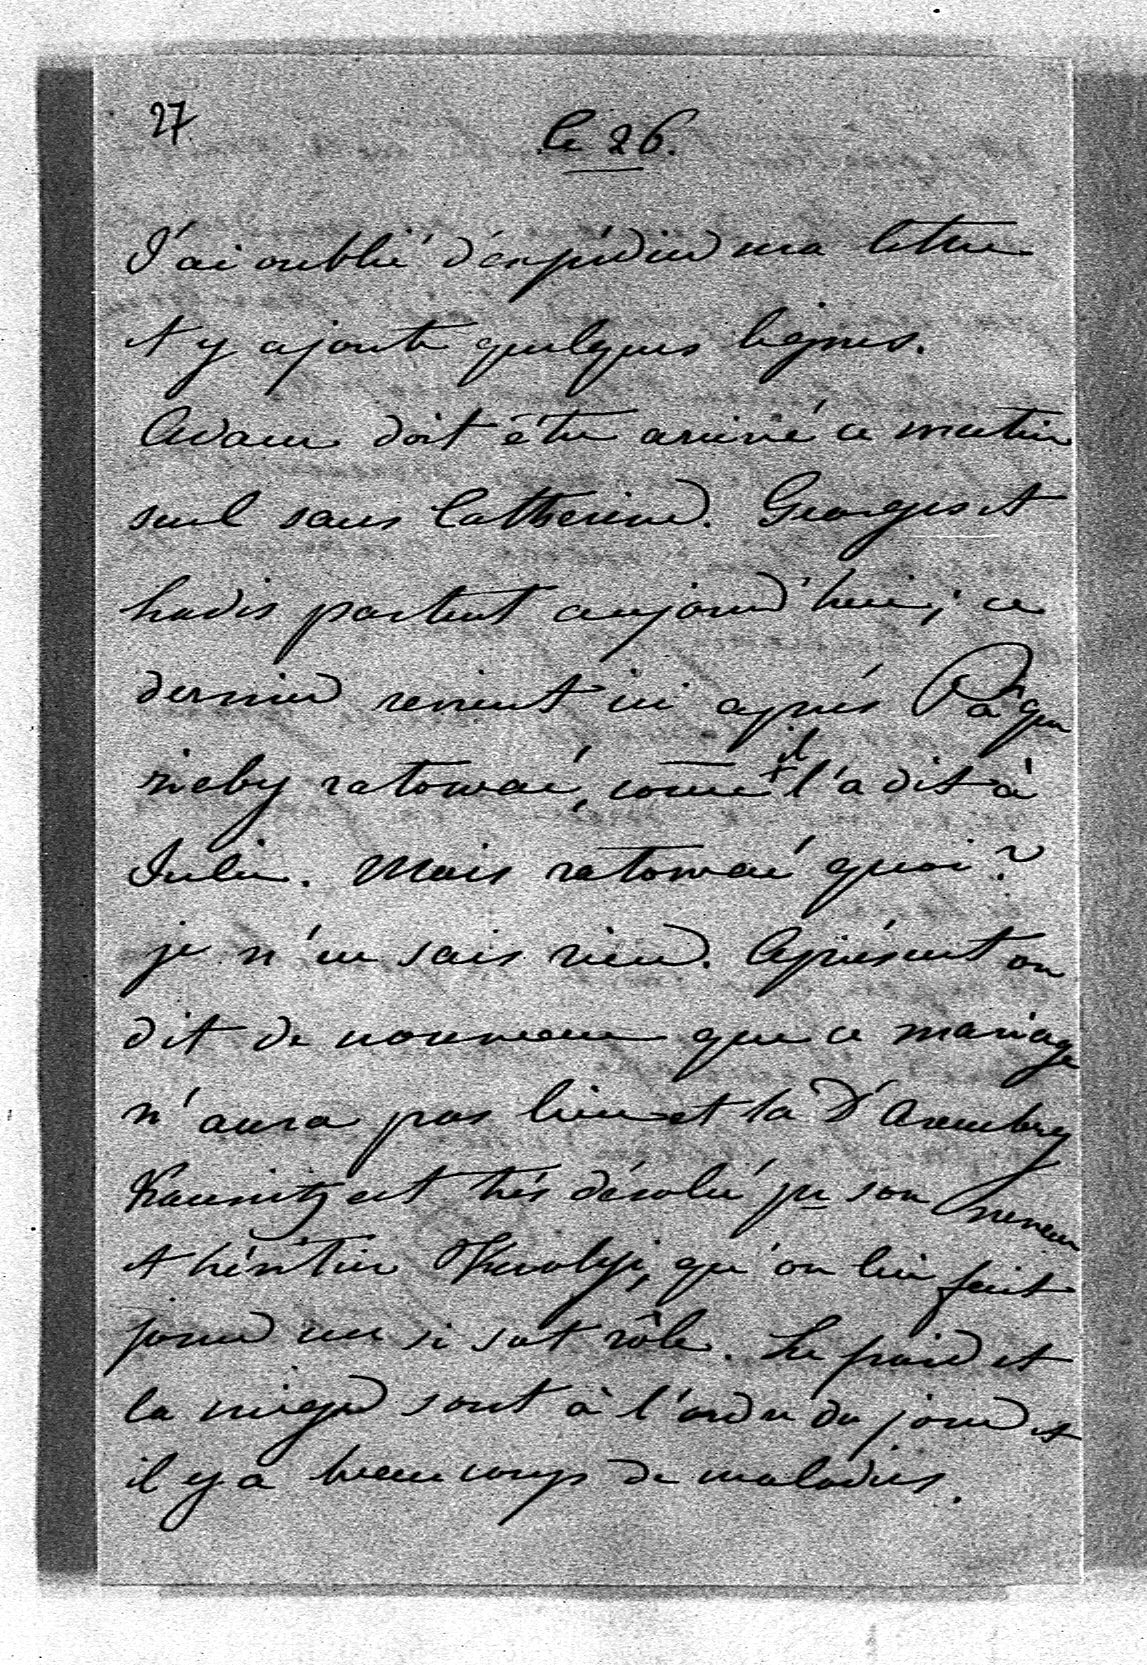 27
le 26.
J'ai oublié d'expédier ma lettre
et y ajoute quelques lignes.
Adam doit être arrivé ce matin
seul sans Catherine. Georges et
hadis partent aujourd'hui; ce
dernier revient ici après Pâques
żeby ratować, come il l'a dit à
Julie. Mais ratować quoi?
je n'en sais rien. Aprésent on
dit de nouveau que ce mariage
n'aura pas lieu et la D'Aremberg
Kaunitz est très désolée pr son neveu
et héritier Karolyi, qu'on lui fait
jouer un si sot rôle. Le froid et
la neige sont à l'ordre du jour et
il y a beaucoup de maladies.